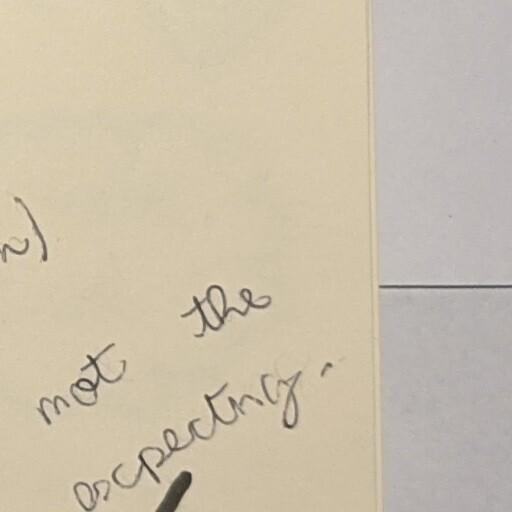 n)
not the
expecting.